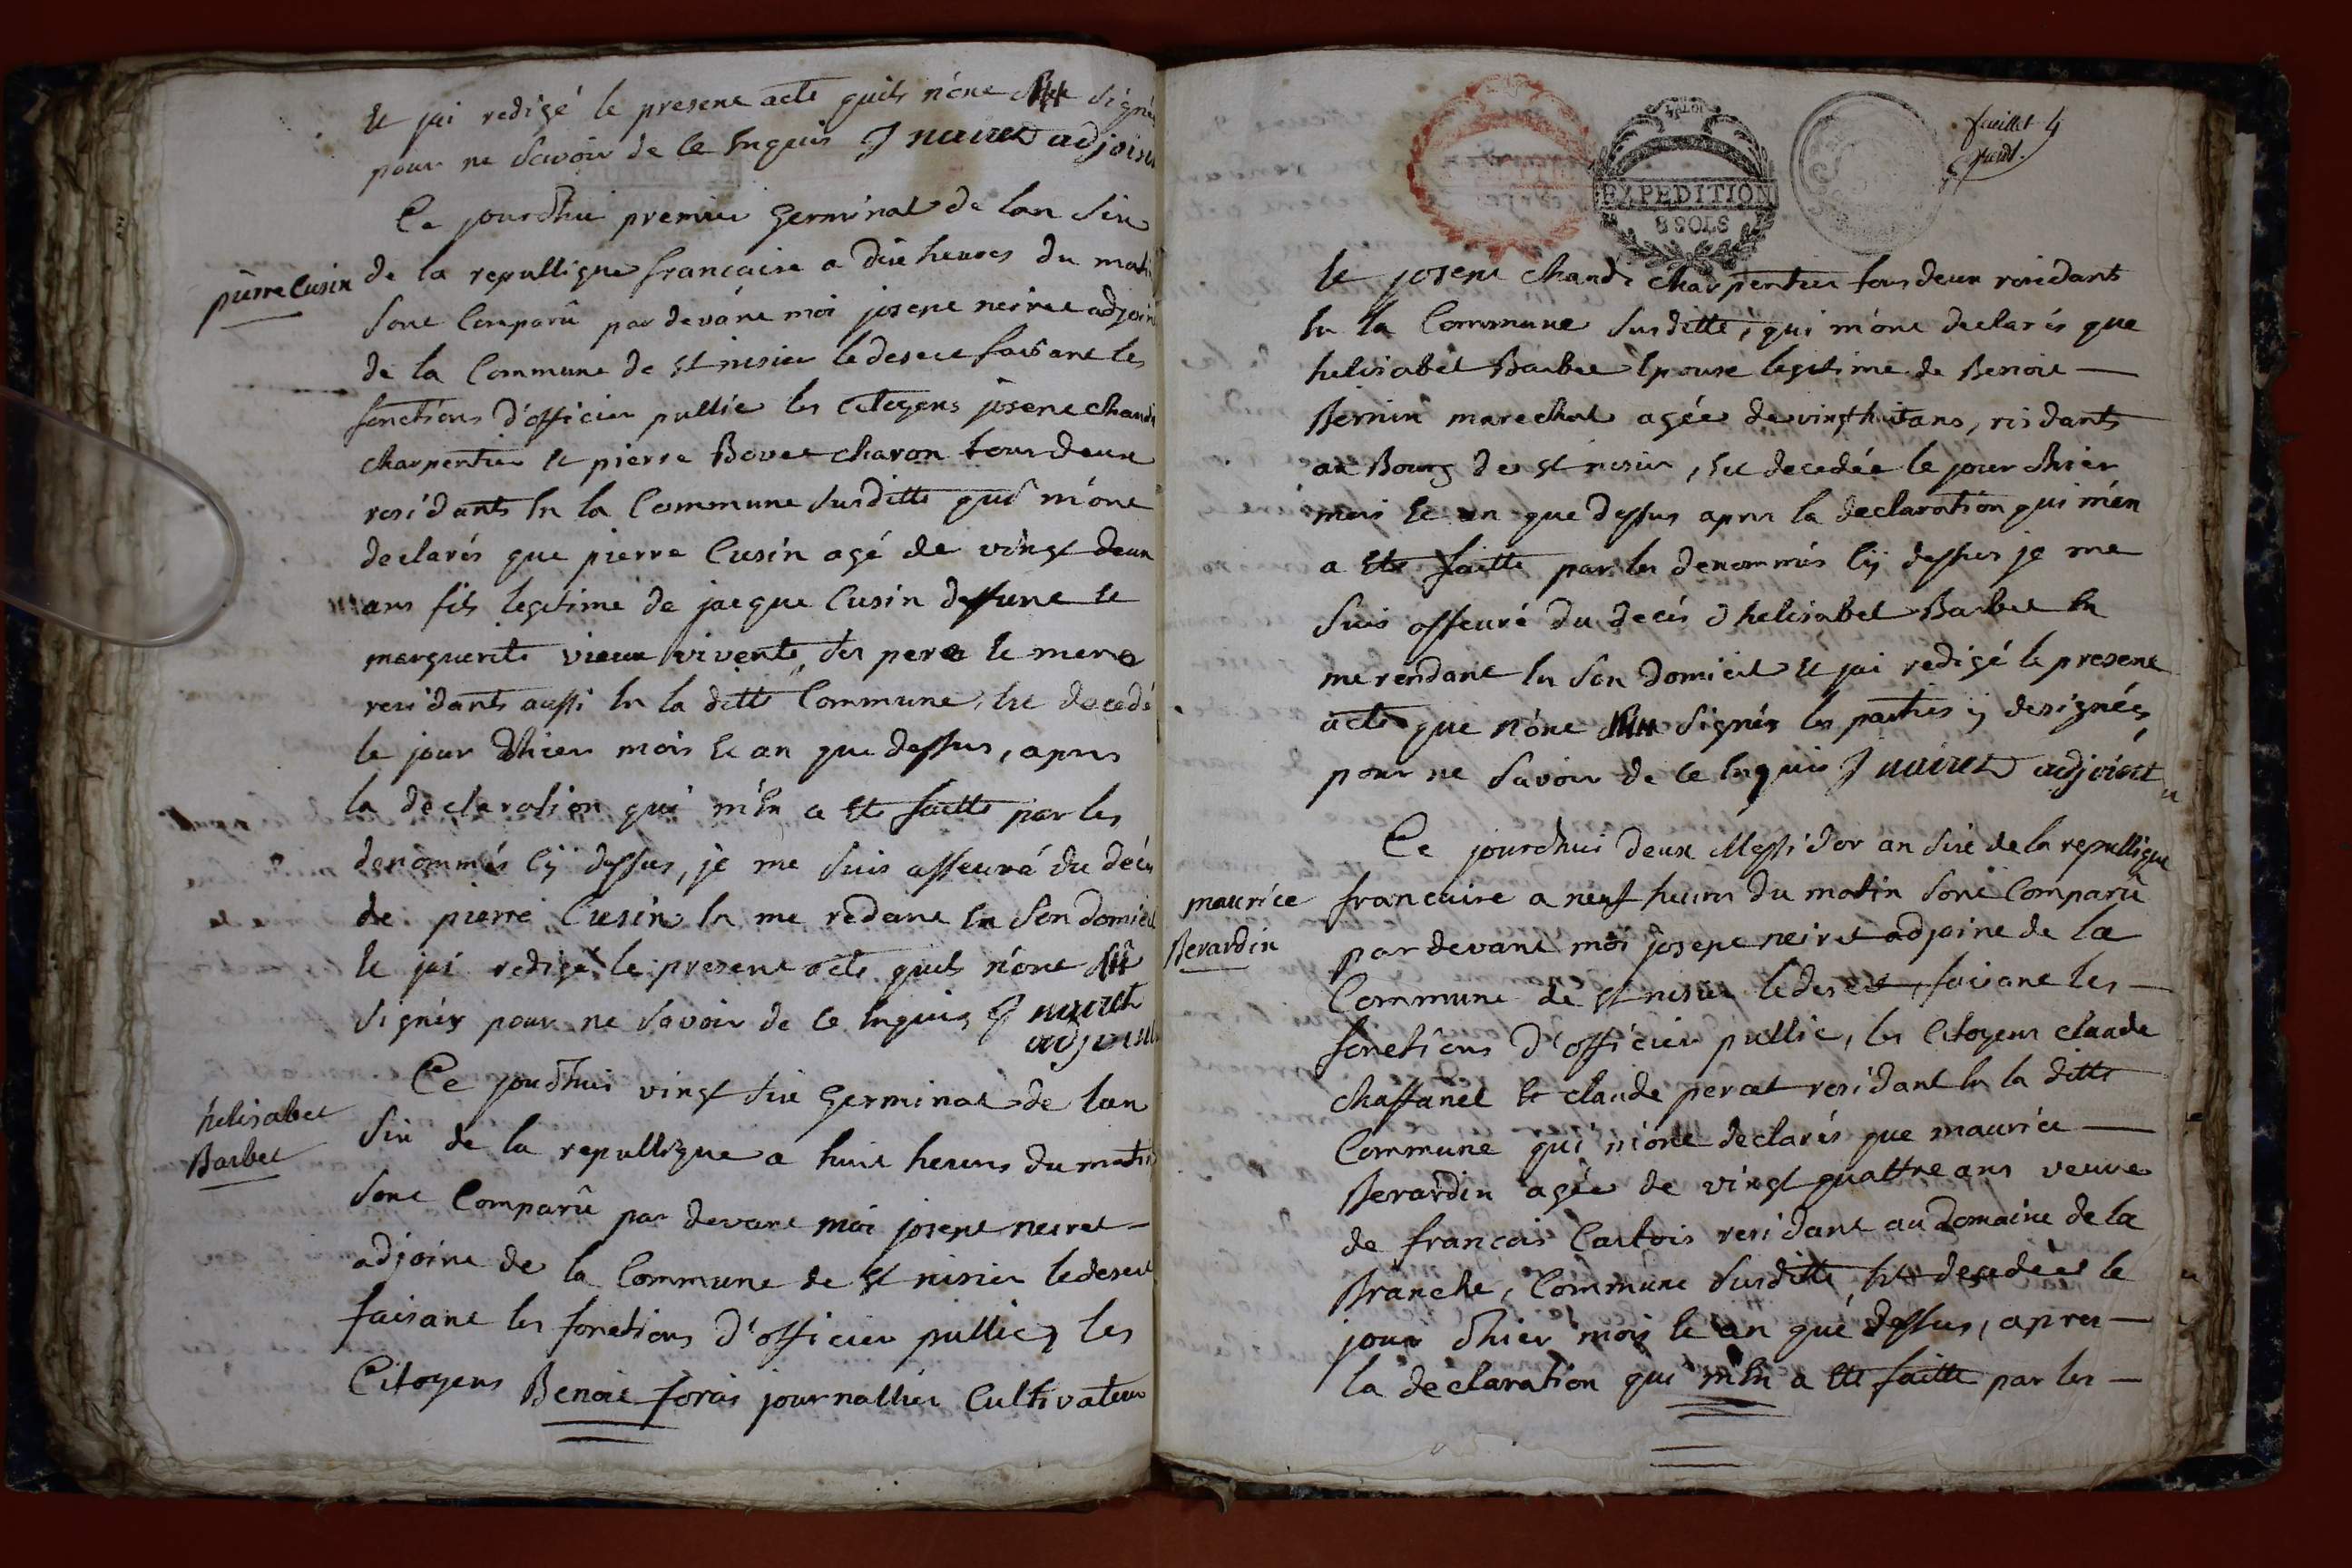 et jai redigé le present acte quils n'ont signés
pour ne savoir de ce enquis J neiret adjoint
Ce jourdhui premier Germinal de lan six
pierre Cusin
de la repullique francaise a dix heures du matin
sont Comparû par devant moi josept neiret adjoint
de la Commune de st nisier ledesert faisant les
fonctions d'officier pullic les Citoyens josept chand
charpentier et pierre Bovet charon tous deux
residants en la Commune susditte qui m'ont
declarés que pierre Cusin agé de vingt deux
ans fils legitime de jacque Cusin deffunt et
marguerite vieux vivente, ses pere et mere
residants aussi en la ditte Commune, est decedé
le jour dhier mois et an que dessus, apres
la declaration qui m'en a ete faitte par les
denommés cÿ dessus, je me suis asseuré du decés
de pierre Cusin en me redant en son domicil
et jai redigé le present acte quils n'ont
signés pour ne savoir de ce enquis J neiret
adjoint
Ce joudhui vingt six Germinal de lan
helisabet
Barbet
six de la repullique a huit heures du matin
sont Comparû par devant moi josept neiret
adjoint de la Commune de st nisier ledesert
faisant les fonctions d'officier pullic, les
Citoyens Benoit forai journallier Cultivateur
feuillet 4
LA LOI
EXPEDITION
8 SOLS
et josept chand charpentier tous deux residants
en la Commune susditte, qui m'ont declarés que
helisabet Barbet epouse legitime de Benoit
Bernin marechal agée de vingt huit ans, risdants
au Bourg de st nisier, est decedée le jour dhier
mois et an que dessus apres la declaration qui m'en
a ete faitte par les denommés cÿ dessus je me
suis asseuré du decés d helisabet Barbet en
me rendant en son domicil et jai redigé le present
acte que n'ont signés les parties ÿ designées
pour ne savoir de ce enquis J neiret adjoint
Ce jourdhui deux Messidor an sixe de la repullique
maurice
Berardin
francaise a neuf heures du matin sont Comparû
par devant moi josept neiret adjoint de la
Commune de st nisier ledesert, faisant les
fonctions d'officier pullic, les Citoyens claude
chaffanel et claude perat residant en la ditte
Commune qui m'ont declarés que maurice
Berardin agée de vingt quattre ans veuve
de francois Cartois residant au Domaine de la
Branche, Commune susditte, est decedée le
jour dhier mois et an que dessus, apres
la declaration qui m'en a ete faitte par les